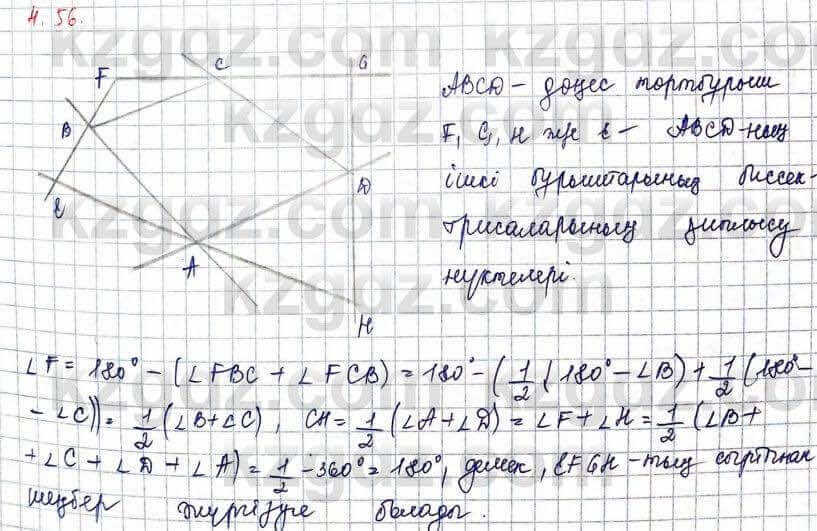 4.56.
F C G
B
E D
A
H
ABCD – дөңес төртбұрыш
F, G, H және E – ABCD-ның
ішкі бұрыштарының биссек-
трисаларының қиылысу
нүктелері.
∠F = 180° – (∠FBC + ∠FCB) = 180° – (1/2 (180° – ∠B) + 1/2 (180° –
– ∠C)) = 1/2 (∠B+∠C), CH = 1/2 (∠A+∠D) = ∠F + ∠H = 1/2 (∠B +
+ ∠C + ∠D + ∠A) = 1/2 · 360° = 180°, демек, EFGH – тың сырттай
шеңбер жүргізуге болады.
kzgdz.com